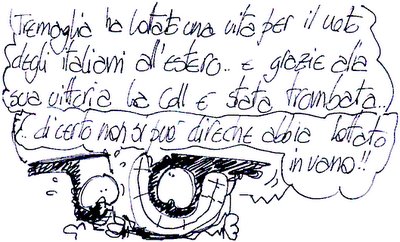 Tremaglia ha lottato una vita per il voto
degli italiani all'estero.. e grazie alla
sua vittoria la CdL è stata trombata..
.. di certo non si può dire che abbia lottato
in vano!!